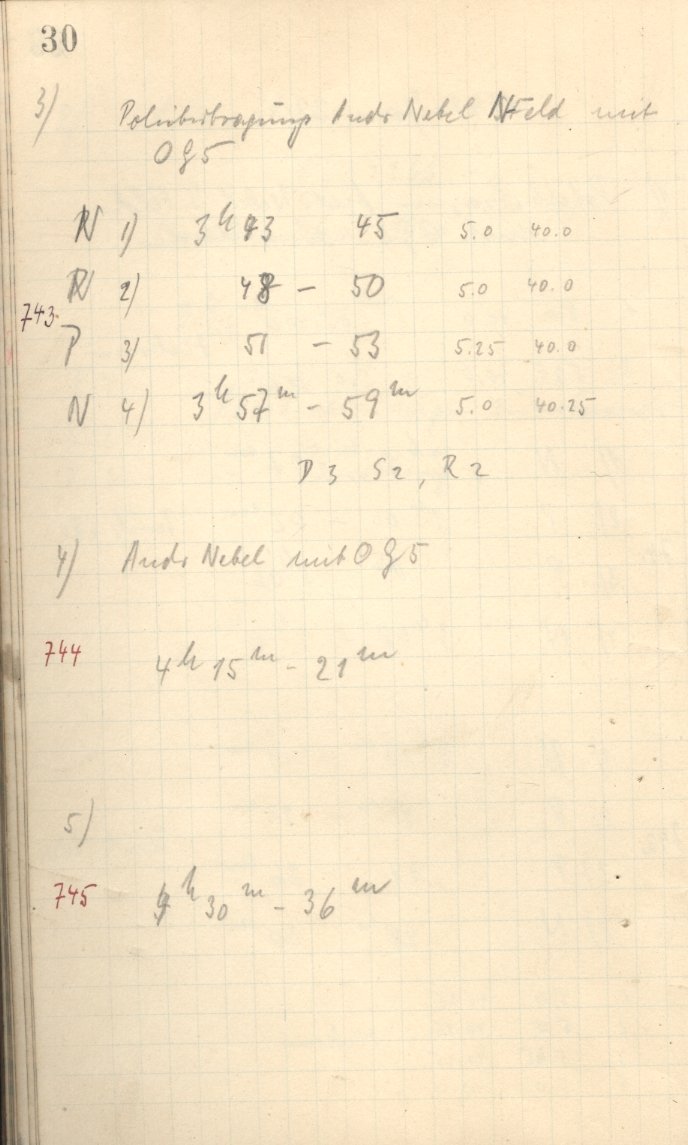 30
3) Polübertragung Andr Nebel N Feld mit
OG5
N 1) 3h 43 45 5.0 40.0
N 2) 48 - 50 5.0 40.0
743
P 3) 51 - 53 5.25 40.0
N 4) 3h 57m - 59m 5.0 40.25
D3 S2, R2
4) Andr Nebel mit OG5
744 4h 15m - 21m
5)
745 4h 30m - 36m